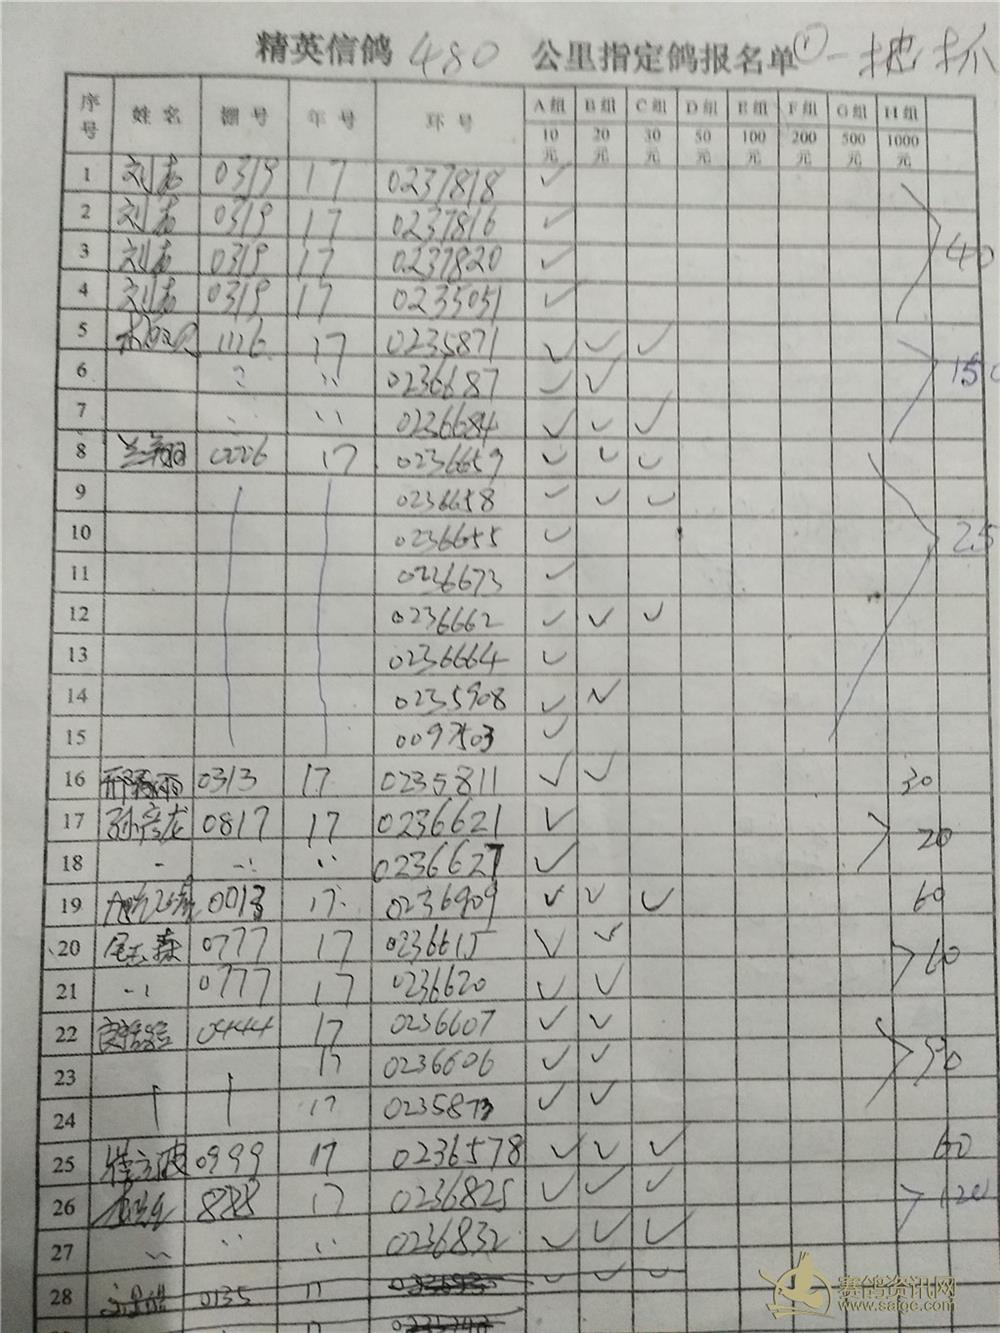 精英信鸽 480 公里指定鸽报名单 ① 一
序号 姓名 棚号 年号 环号 A组 B组 C组 D组 E组 F组 G组 H组
10元 20元 30元 50元 100元 200元 500元 1000元
1 刘志 0319 17 0237818 ✓
2 刘志 0319 17 0237816 ✓
3 刘志 0319 17 0237820 ✓ 40
4 刘志 0319 17 0235051 ✓
5 1116 17 0235871 ✓ ✓ ✓
6 0236687 ✓ ✓ 150
7 0236684 ✓ ✓ ✓
8 0226 17 0236659 ✓ ✓ ✓
9 0236658 ✓ ✓ ✓
10 0236655 ✓
11 0236673 ✓
12 0236662 ✓ ✓ ✓
13 0236664 ✓
14 0235908 ✓ ✓
15 0097503 ✓
16 0313 17 0235811 ✓ ✓ 30
17 孙彦龙 0817 17 0236621 ✓ 20
18 0236627 ✓
19 0013 17 0236909 ✓ ✓ ✓ 60
20 0777 17 0236615 ✓ ✓ 60
21 0777 17 0236620 ✓ ✓
22 0444 17 0236607 ✓ ✓
23 17 0236606 ✓ ✓ 90
24 17 0235873 ✓ ✓
25 0999 17 0236578 ✓ ✓ ✓ 60
26 888 17 0236825 ✓ ✓ ✓ 120
27 0236832 ✓ ✓ ✓
28 0135 17
17
赛鸽资讯网
www.saige.com